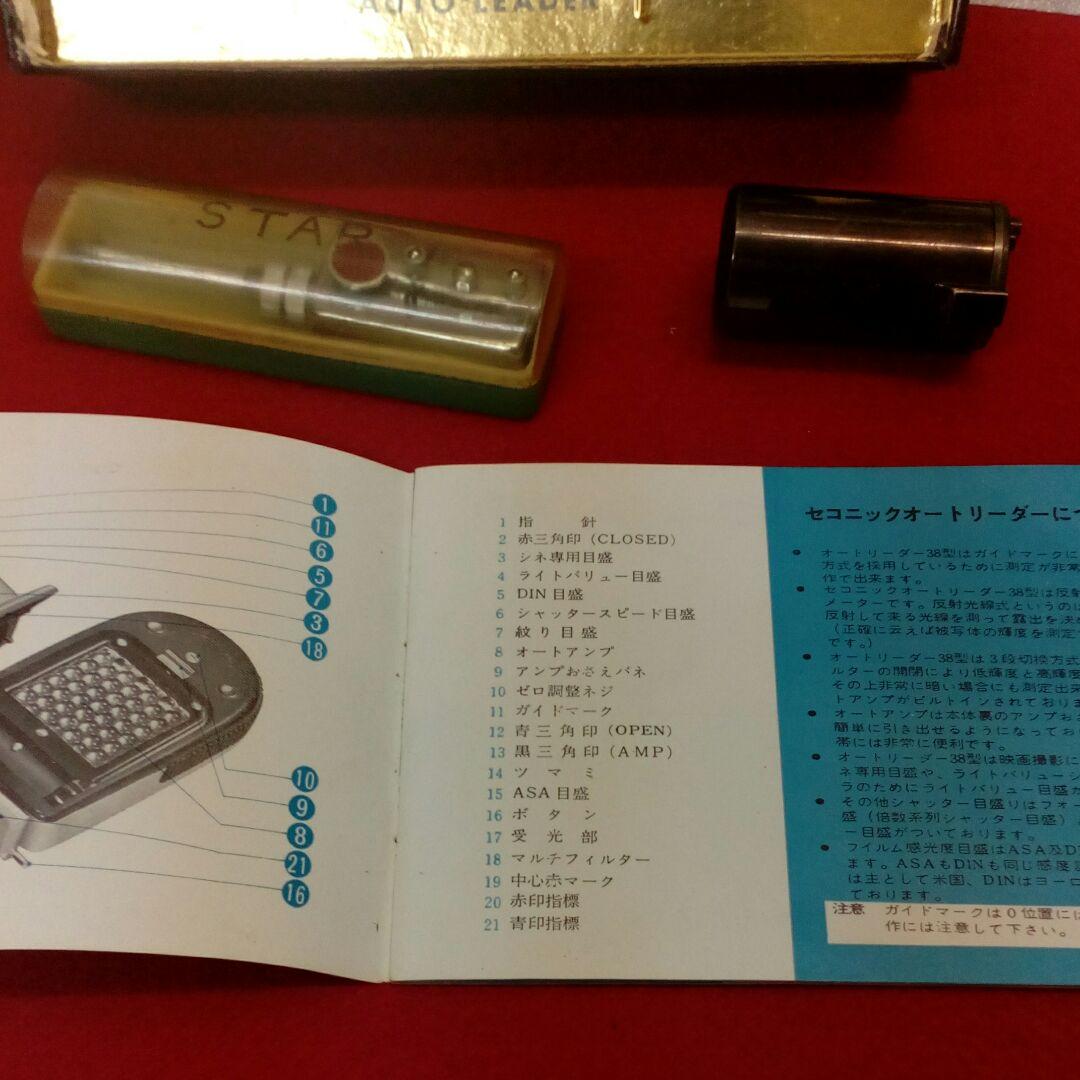 AUTO-LEADER
STAR
1
11
6
5
7
3
18
10
9
8
21
16
1 指針
2 赤三角印 (CLOSED)
3 シネ専用目盛
4 ライトバリュー目盛
5 DIN目盛
6 シャッタースピード目盛
7 絞り目盛
8 オートアンプ
9 アンプおさえバネ
10 ゼロ調整ネジ
11 ガイドマーク
12 青三角印 (OPEN)
13 黒三角印 (AMP)
14 ツマミ
15 ASA目盛
16 ボタン
17 受光部
18 マルチフィルター
19 中心赤マーク
20 赤印指標
21 青印指標
セコニックオートリーダーにつ
● オートリーダー38型はガイドマークに
方式を採用しているために測定が非常
作で出来ます。
● セコニックオートリーダー38型は反射
メーターです。反射光線式というのは
反射して来る光線を測って露出を決め
(正確に云えば被写体の輝度を測定
です。)
● オートリーダー38型は3段切換方式
ルターの開閉により低輝度と高輝度
その上非常に暗い場合にも測定出来
トアンプがビルトインされておりま
● オートアンプは本体裏のアンプおさ
簡単に引き出せるようになってお
帯には非常に便利です。
● オートリーダー38型は映画撮影に
ネ専用目盛や、ライトバリューシ
ラのためにライトバリュー目盛が
● その他シャッター目盛りはフォー
盛 (倍数系列シャッター目盛)
ー目盛がついております。
● フイルム感光度目盛はASA及D
ます。ASAもDINも同じ感度
は主として米国、DINはヨーロ
ております。
注意 ガイドマークは0位置には
作には注意して下さい。